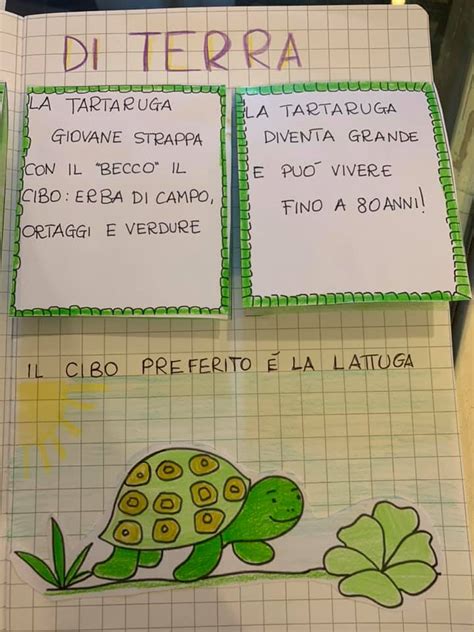 DI TERRA
LA TARTARUGA
GIOVANE STRAPPA
CON IL "BECCO" IL
CIBO: ERBA DI CAMPO,
ORTAGGI E VERDURE
LA TARTARUGA
DIVENTA GRANDE
E PUÓ VIVERE
FINO A 80 ANNI!
IL CIBO PREFERITO É LA LATTUGA